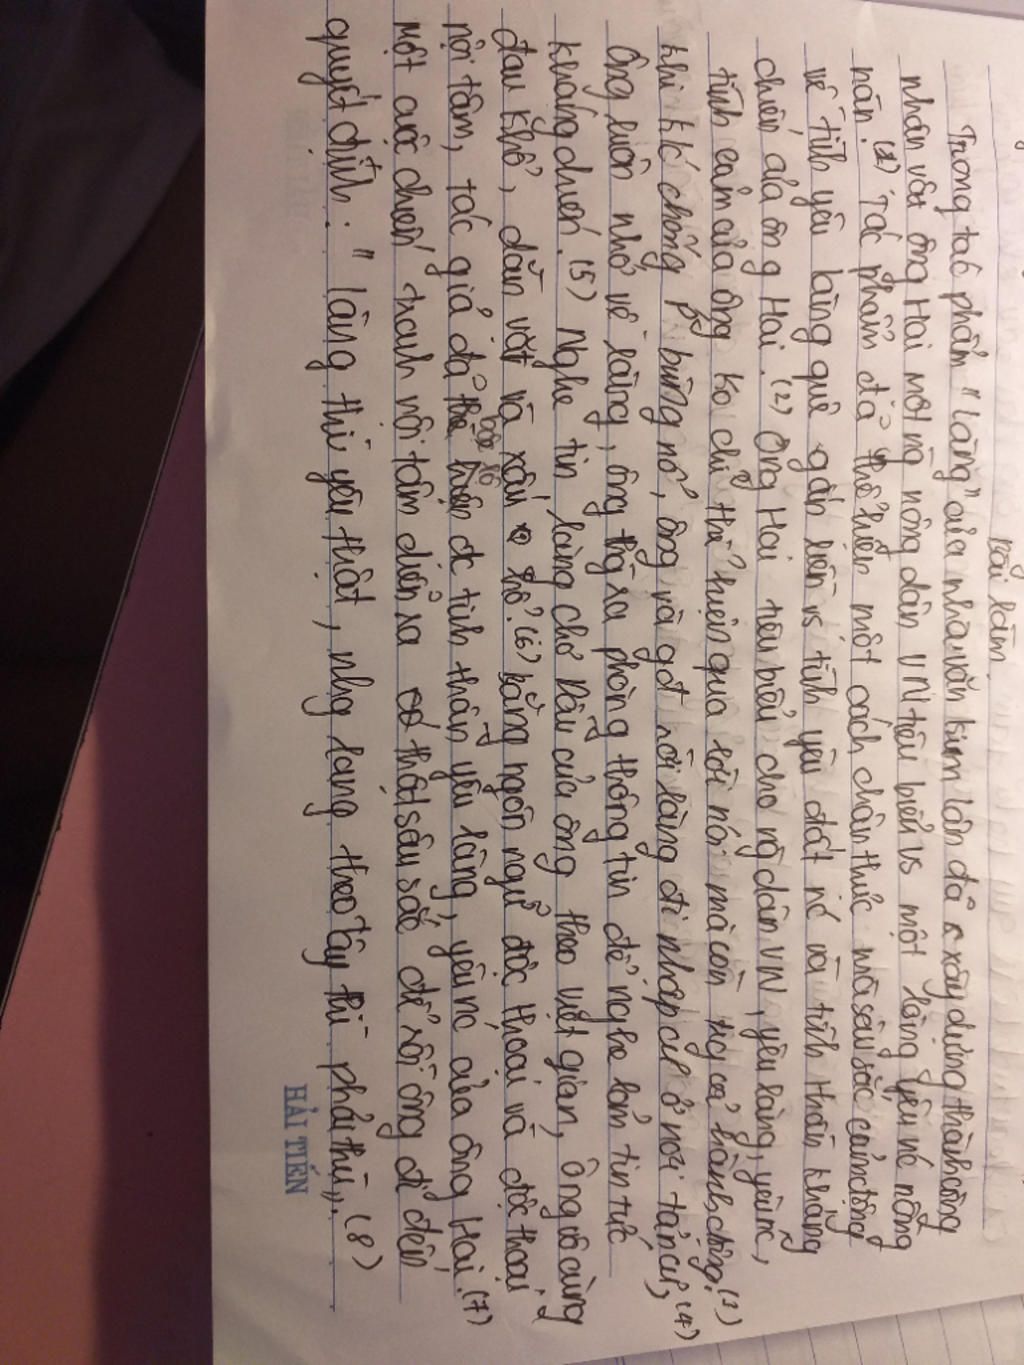 Bài làm
Trong tác phẩm "Làng" của nhà văn Kim Lân đã xây dựng thành công
nhân vật ông Hai một ng nông dân VN tiêu biểu vs một lòng yêu nc nồng
nàn. (1) Tác phẩm đã thể hiện một cách chân thực mà sâu sắc cảm động
về tình yêu làng quê gắn liền vs tình yêu đất nc và tinh thần kháng
chiến của ông Hai. (2) Ông Hai tiêu biểu cho ng dân VN, yêu làng, yêu nc,
tình cảm của ông ko chỉ thể hiện qua lời nói mà còn cả hành động. (3)
Khi k/c chống P bùng nổ, ông và gđ rời làng đi nhập cư ở nơi tản cư, (4)
ông luôn nhớ về làng, ông ra phòng thông tin để nghe lỏm tin tức
kháng chiến. (5) Nghe tin làng chợ Dầu của ông theo việt gian, ông vô cùng
đau khổ, dằn vặt và xấu hổ. (6) Bằng ngôn ngữ độc thoại và độc thoại
nội tâm, tác giả đã bộc lộ đc tinh thần yêu làng, yêu nc của ông Hai. (7)
Một cuộc chiến tranh nội tâm diễn ra thật sâu sắc để rồi ông đi đến
quyết định: "Làng thì yêu thật, nhg làng theo tây thì phải thù". (8)
HẢI TIẾN